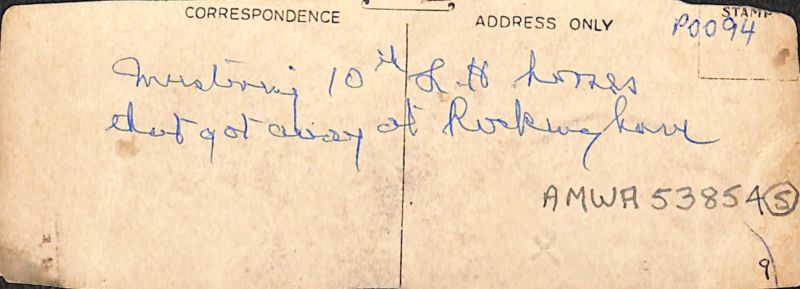 CORRESPONDENCE
ADDRESS ONLY
STAMP
P0094
Mustering 10th L H horses
that got away at Rockingham
AMWA 53854 5
9